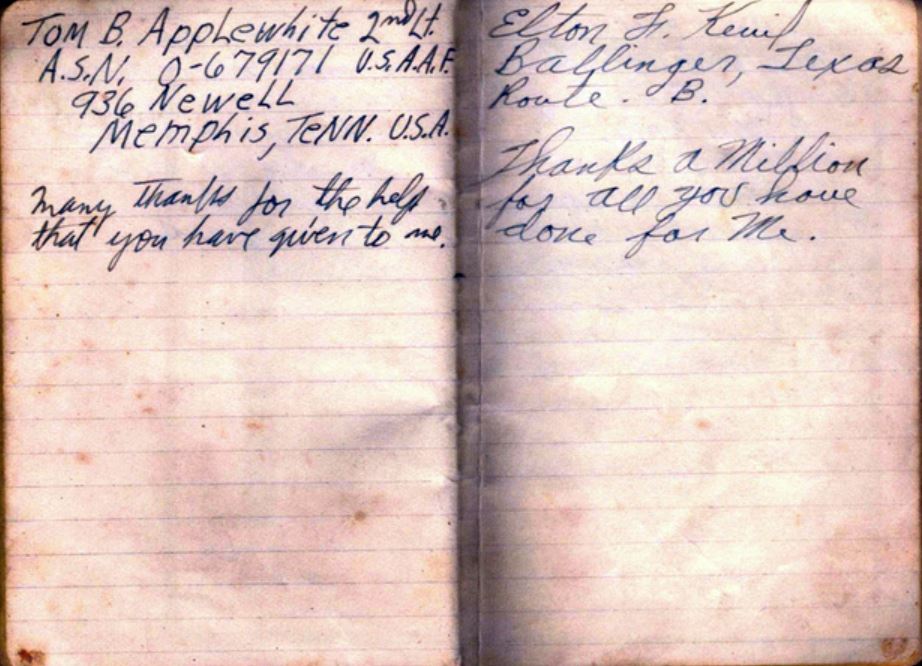 Tom B. Applewhite 2nd Lt.
A.S.N. O-679171 U.S.A.A.F.
936 Newell
Memphis, Tenn. U.S.A.
Many thanks for the help
that you have given to me.
Elton F.
Ballinger, Texas
Route. B.
Thanks a Million
for all you have
done for Me.